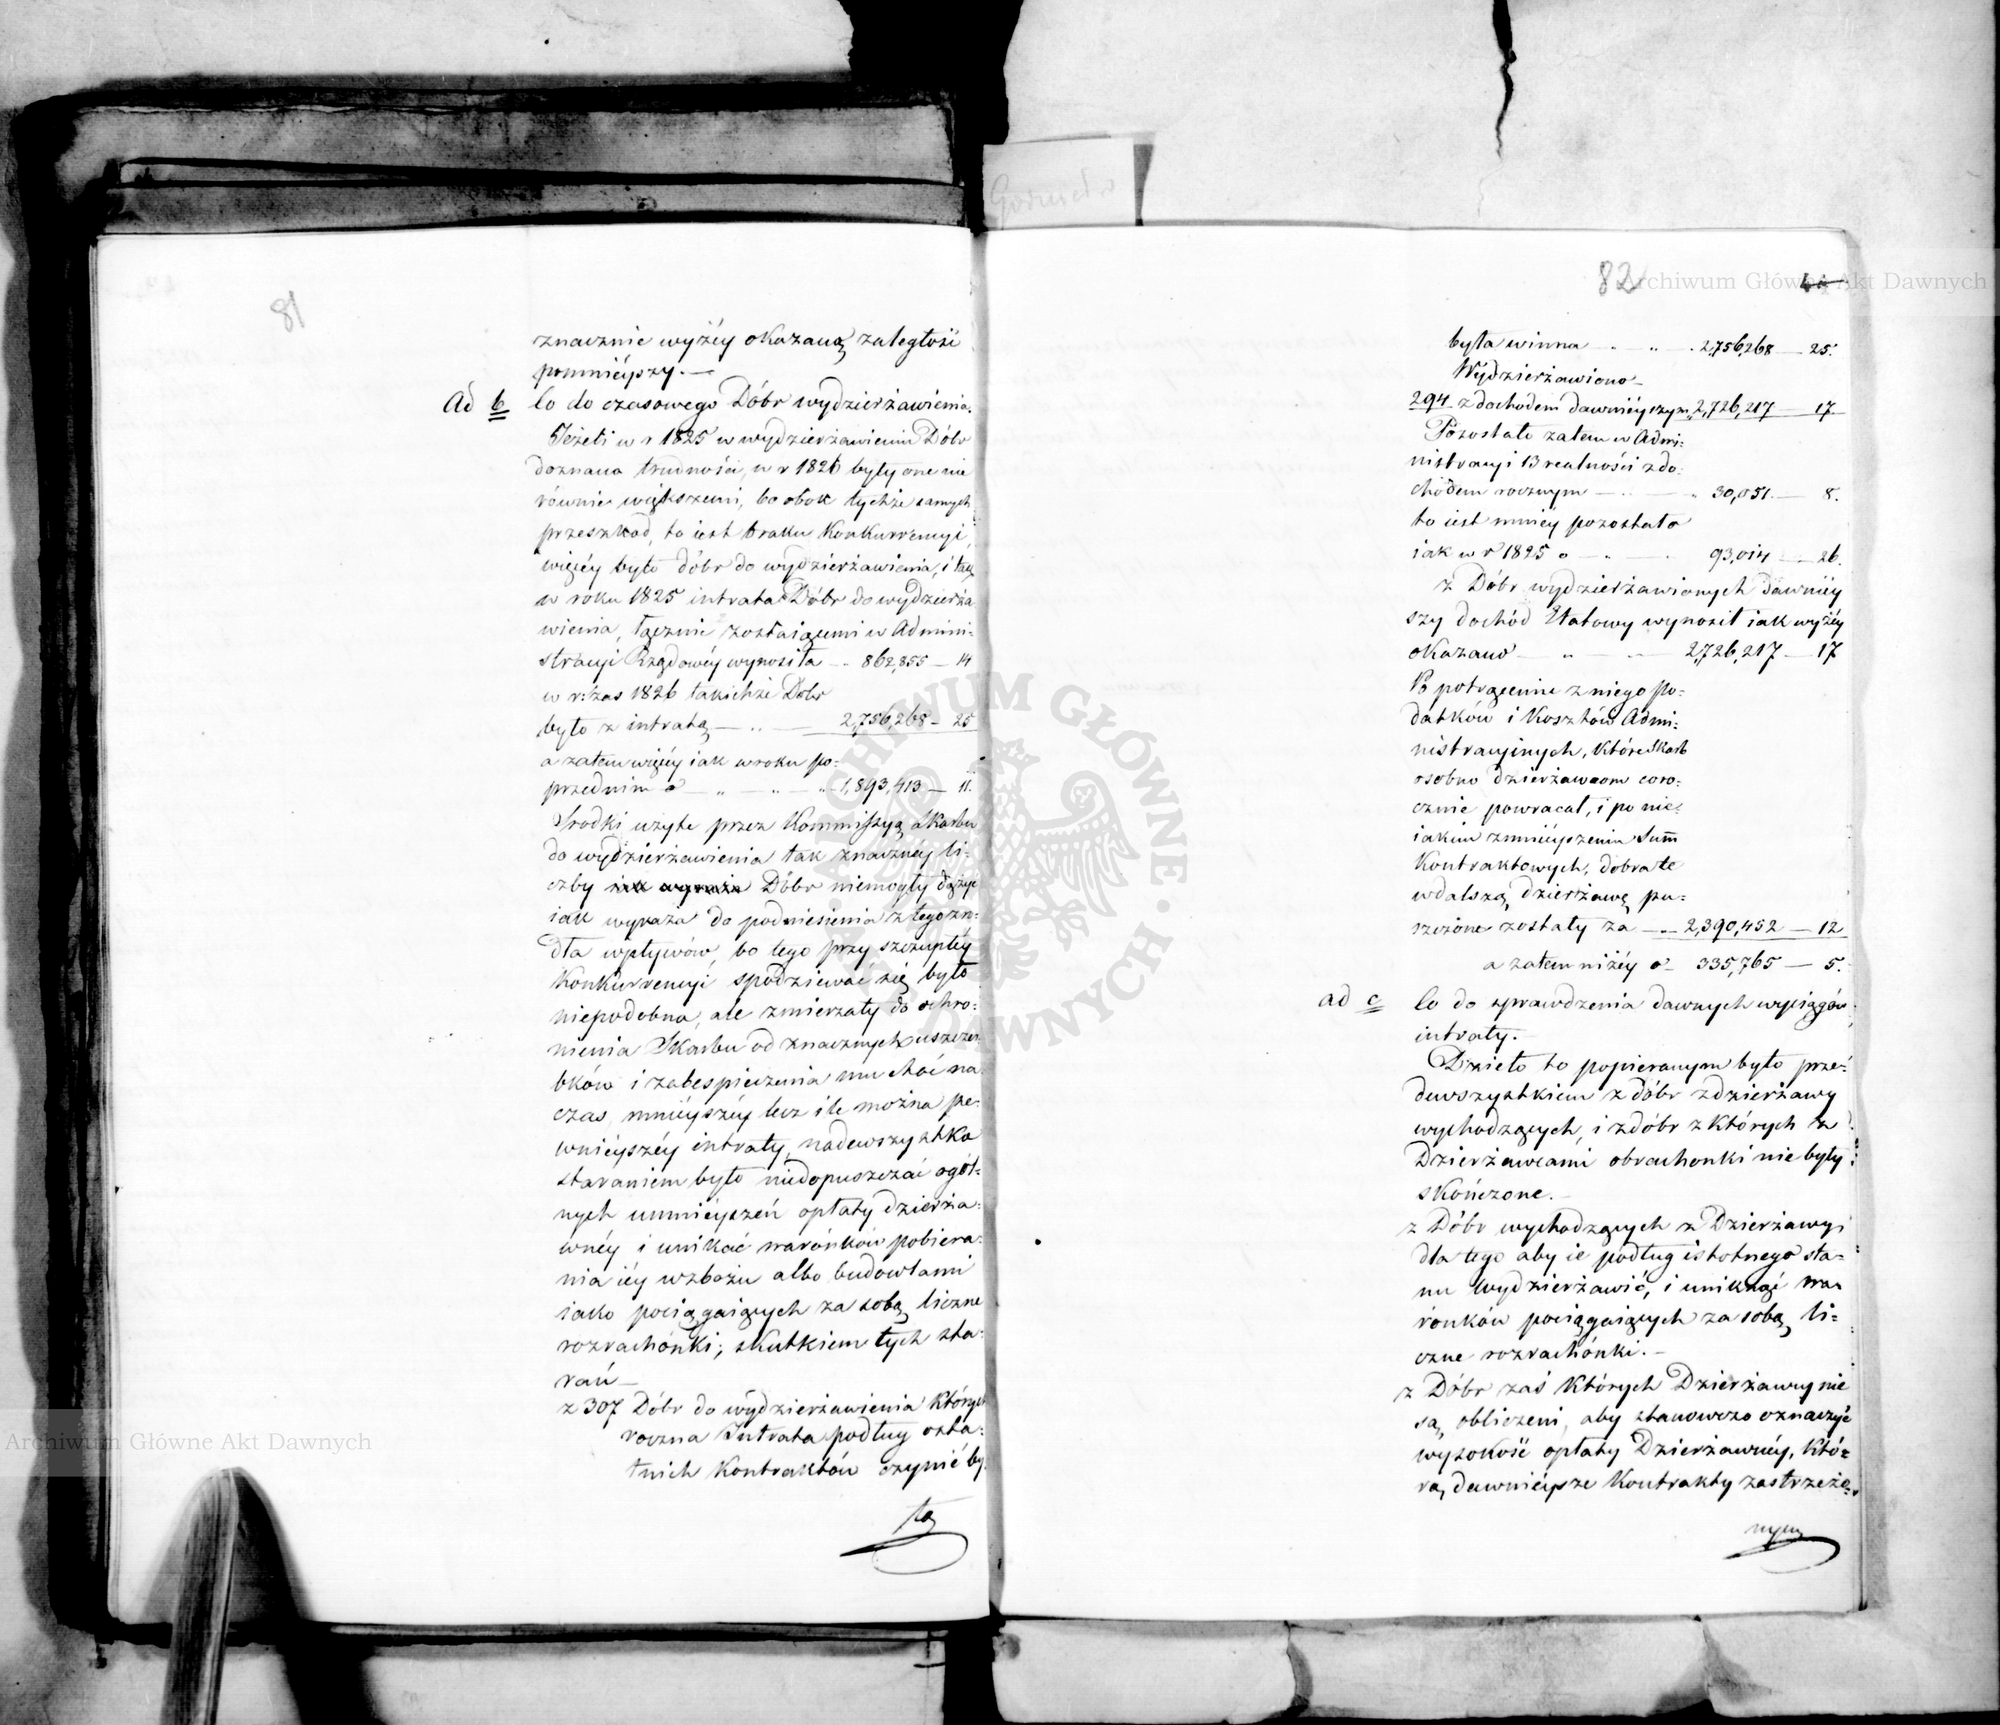 81
znacznie wyżéy okazaną zaległość
pomnieyszy. —
Ad b Co do czasowego Dóbr wydzierżawienia.
Jeżeli w r 1825 w wydzierżawieniu Dóbr
doznano trudności, w r 1826 były one nie
równie większemi, bo obok tychże samych
przeszkod, to iest braku Konkurrencyi,
więcéy było dóbr do wydzierżawienia, i tak
w roku 1825 intrata Dóbr do wydzierża
wienia, łącznie zostaiącemi w Admini-
stracyi Rządowéy wynosiła - 862,855 — 14
w r: zas 1826 takichże Dóbr
było z intratą — „ — 2,756,268 - 25
a zatem więcéy iak w roku po-
przednim o — „ — „ — „ 1,893,413 — 11.
Srodki użyte przez Kommissyą Skarbu
do wydzierżawienia tak znacznéy li-
czby iak wyraża Dóbr niemogły dążyć
iak wyraża do podniesienia z tego zró-
dła wpływów, bo tego przy szczupłéy
Konkurrencyi spodziewać się było
niepodobna, ale zmierzały do ochro-
nienia Skarbu od znacznych uszczer
bków i zabespieczenia mu choć na
czas, mnieyszéy lecz ile można pe-
wnieyszéy intraty, nadewszystko
staraniem było niedopuszczać ogól-
nych umnieyszeń opłaty dzierża-
wnéy i unikać warónków pobiera-
nia iéy w zbożu albo budowlami
iako pociągaiących za sobą liczne
rozrachónki; skutkiem tych sta-
rań —
z 307 Dóbr do wydzierżawienia których
roczna Intrata podług osta-
tnich Kontraktów czynić by-
ła
82
była winna - „ - 2,756,268 — 25.
Wydzierżawiono —
294 z dochodem dawnieyszym 2,726,217 — 17
Pozostało zatem w Admi-
nistracyi 13 realności z do-
chodem rocznym — „ — „ 30,051 — 8.
to iest mniéy pozostało
iak w r 1825 o — „ — 93,014 — 26.
z Dóbr wydzierżawionych dawniéy
szy dochód Etatowy wynosił iak wyżéy
okazano — „ — 2,726,217 — 17
Po potrąceniu z niego po-
datków i Kosztów Admi-
nistracyinych, które Skarb
osobno dzierżawcom coro-
cznie powracał, i po nie-
iakim zmnieyszeniu Summ
Kontraktowych, dobra te
w dalszą dzierżawę pu-
szczone zostały za — 2,390,452 — 12
a zatem niżéy o - 335,765 — 5.
ad c Co do sprawdzenia dawnych wyciągów
intraty. —
Dzieło to popieranym było prze-
dewszystkiem z dóbr z dzierżawy
wychodzących, i z dóbr z których z
Dzierżawcami obrachonki nie były
skończone. —
z Dóbr wychodzących z Dzierżawy,
dla tego aby ie podług istotnego sta-
nu wydzierżawić, i uniknąć wa-
ronków pociągaiących za sobą li-
czne rozrachónki. —
z Dóbr zaś których Dzierżawcy nie
są obliczeni, aby stanowczo oznaczyć
wysokość opłaty Dzierżawnéy, któ-
rą dawnieysze Kontrakty zastrzeżo-
nym
Archiwum Główne Akt Dawnych
Archiwum Główne Akt Dawnych
ARCHIWUM GŁÓWNE AKT DAWNYCH